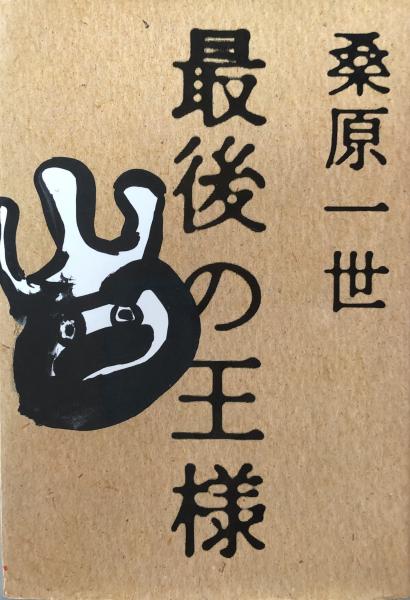 桑原一世
最後の王様